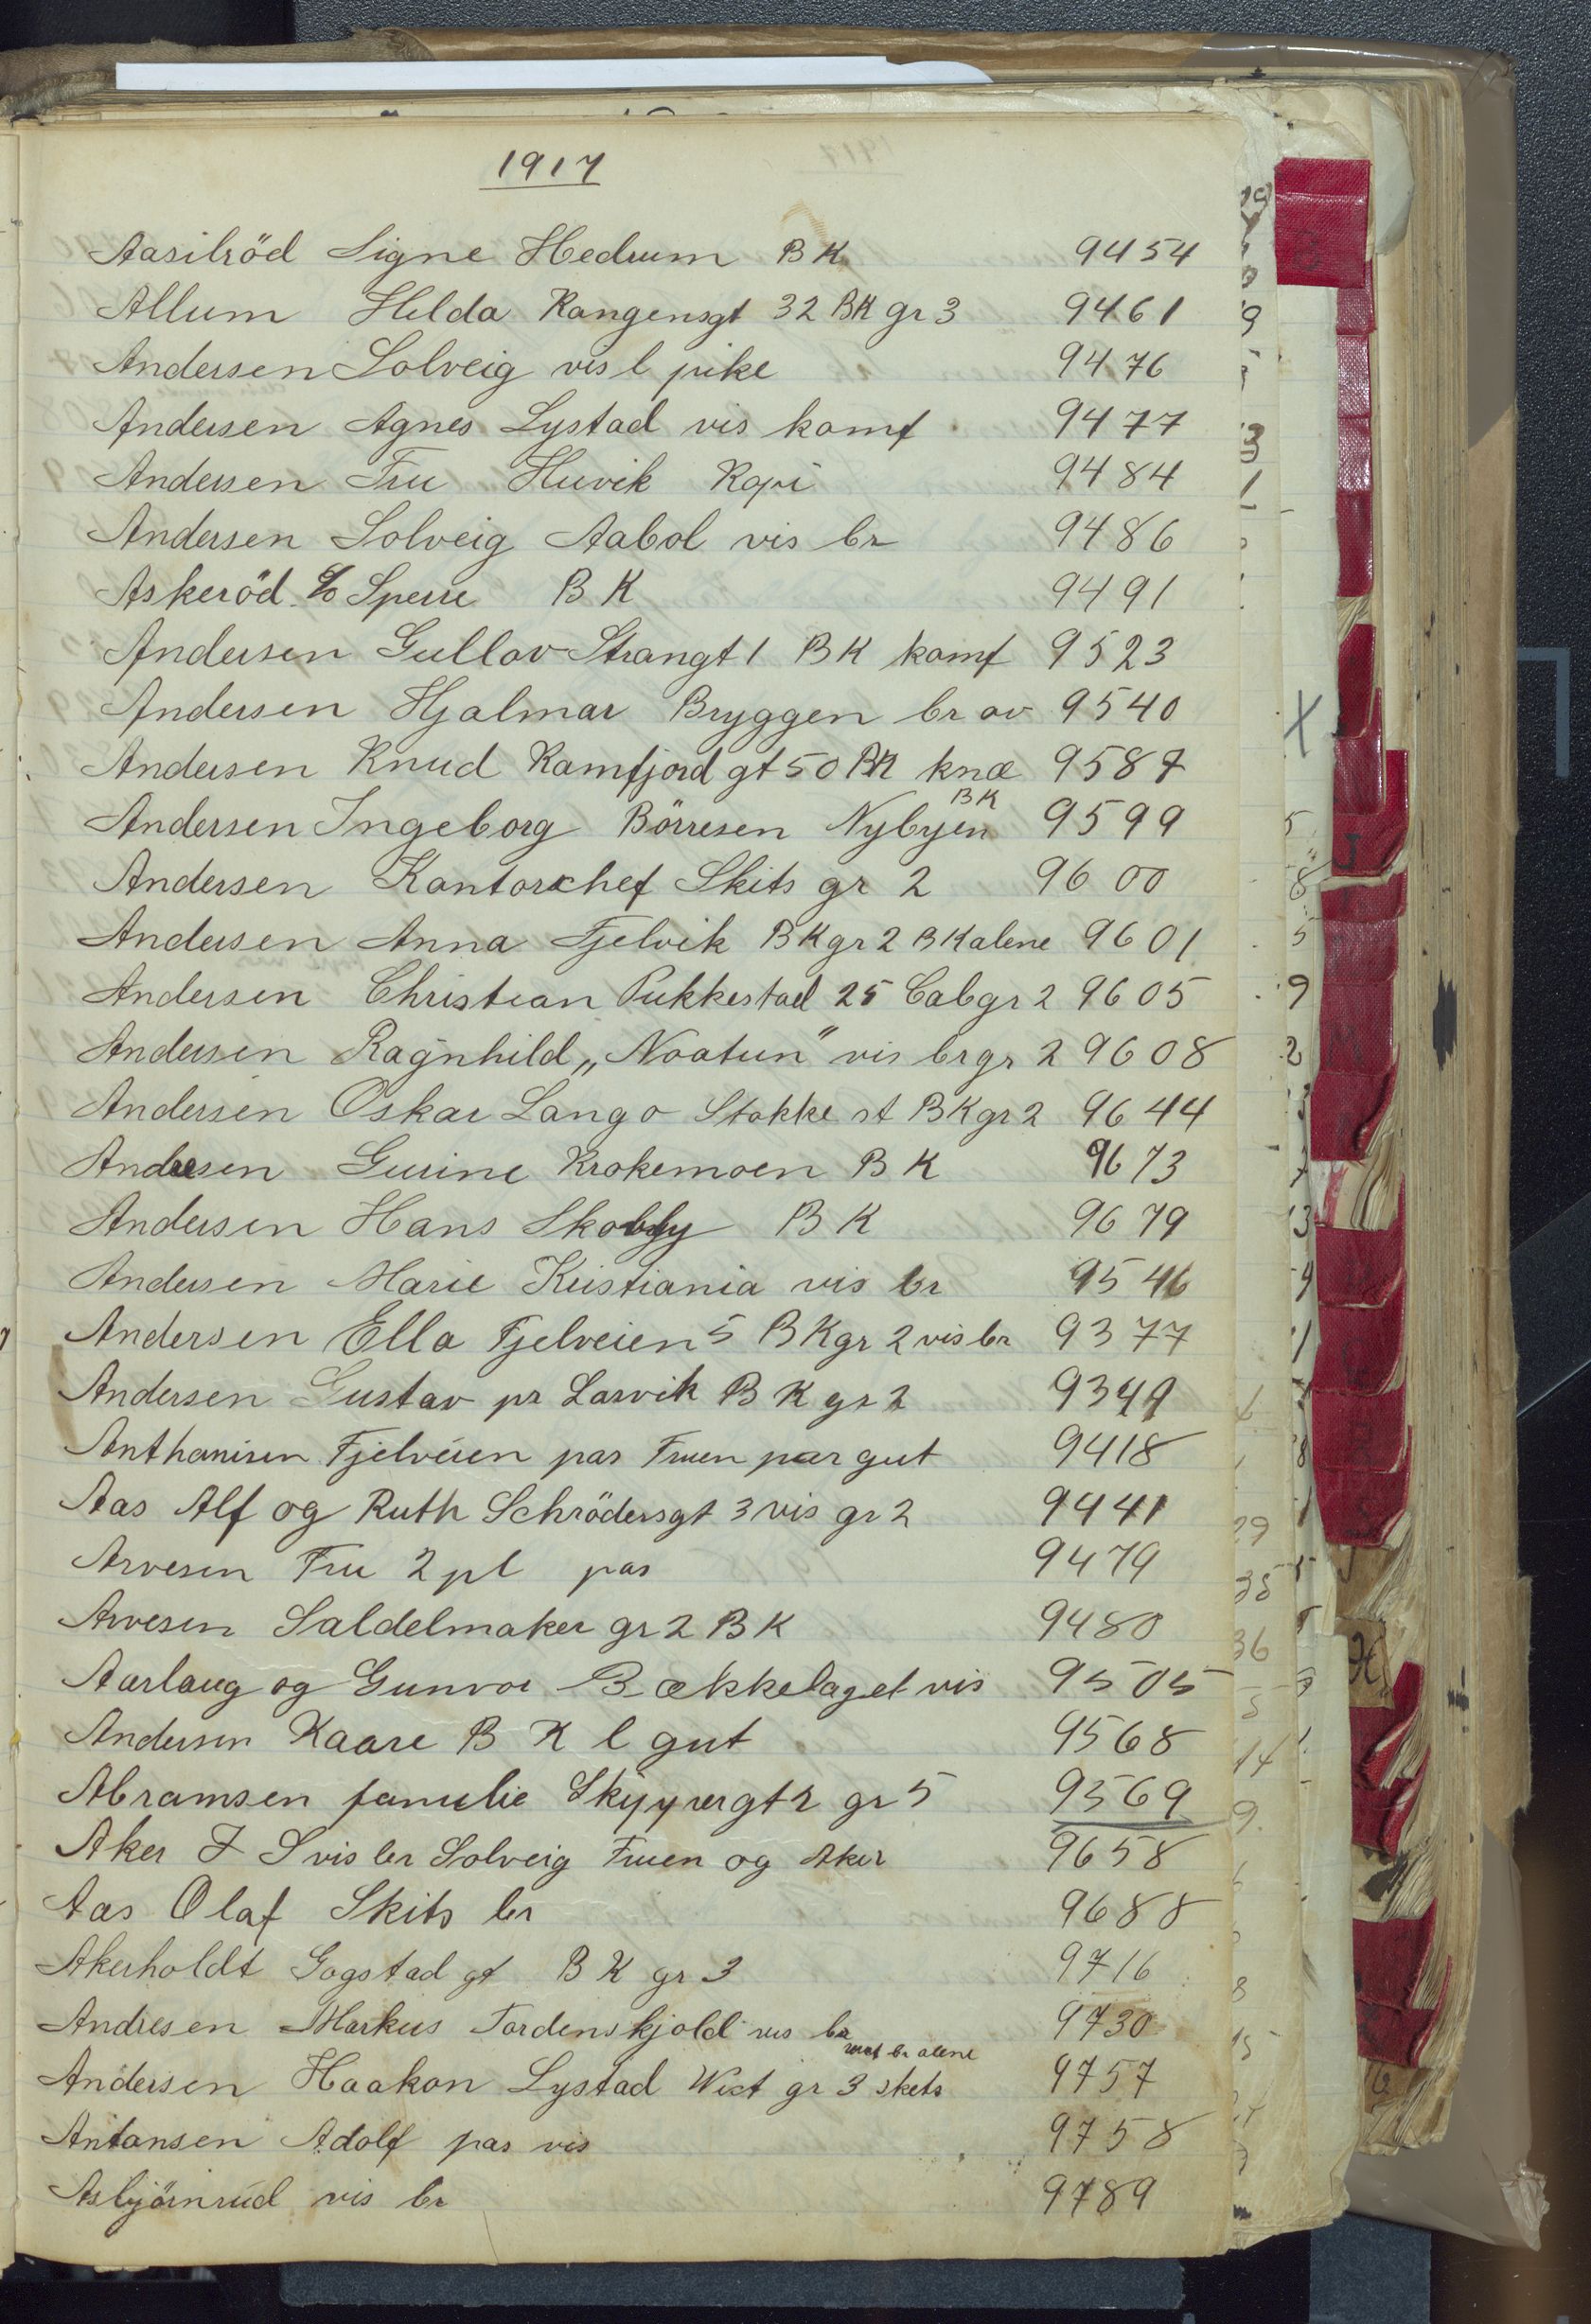 1917
Aasilröd Signe Hedrum BK 9454
Allum Helda Kongensgt 32 BK gr 3 9461
Andersen Solveig vis l pike 9476
Andersen Agnes Lystad vis komf 9477
Andersen Fru Huvik Kopi 9484
Andersen Solveig Aabol vis br 9486
Askeröd c/o Sperre BK 9491
Andersen Gullov Strangt 1 BK komf 9523
Andersen Hjalmar Bryggen br ov 9540
Andersen Knud Kamfjord gt 50 BK knæ 9587
Andersen Ingeborg Börresen Nybyen BK 9599
Andersen Kontorchef Skits gr 2 9600
Andersen Anna Fjelvik BK gr 2 BK alene 9601
Andersen Christian Pukkestad 25 Cab gr 2 9605
Andersen Ragnhild „Noatun" vis br gr 2 9608
Andersen Oskar Lango Stokke st BK gr 2 9644
Andresen Gurine Krokemoen BK 9673
Andersen Hans Skobby BK 9679
Andersen Marie Kristiania vis br 9546
Andersen Ella Fjelveien 5 BK gr 2 vis br 9377
Andersen Gustav pr Larvik BK gr 2 9349
Anthonisen Fjelveien pas Fruen par gut 9418
Aas Alf og Ruth Schrödersgt 3 vis gr 2 9441
Arvesen Fru 2 pl pas 9479
Arvesen Saldelmaker gr 2 BK 9480
Aarlaug og Gunvor Bækkelaget vis 9505
Andersen Kaare BK l gut 9568
Abramsen familie Skyppergt 2 gr 5 9569
Aker I S vis br Solveig Fruen og Aker 9658
Aas Olaf Skits br 9688
Akerholdt Gogstad gt BK gr 3 9716
Andresen Markus Tordenskjold vis br 9730
br alene
Andersen Haakon Lystad Vict gr 3 skets 9757
Antonsen Adolf pas vis 9758
Asbjörnrud vis br 9789